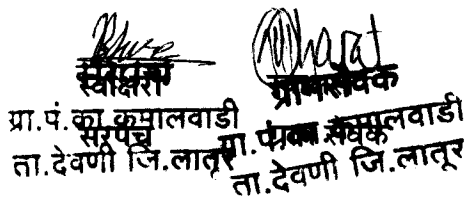 सरपंच
ग्रा.पं.का.कमालवाडी
सरपंच
ता.देवणी जि.लातूर
ग्रामसेवक
ग्रा.पं.का कमालवाडी
ता.देवणी जि.लातूर